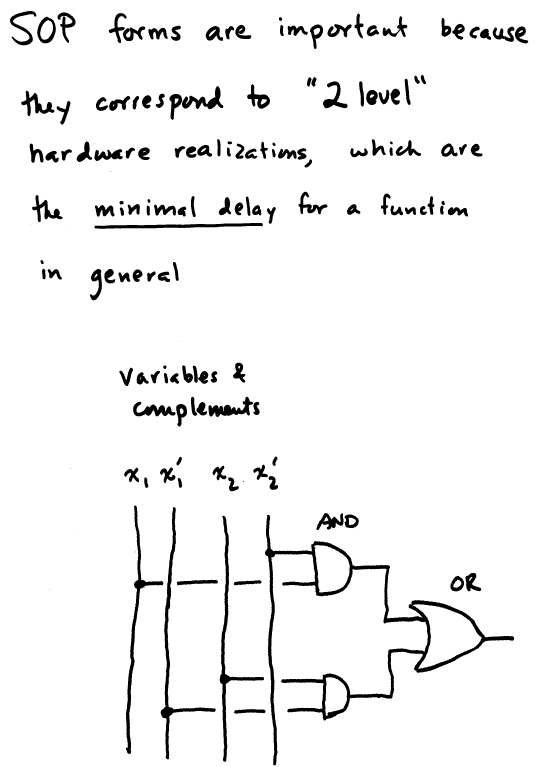 SOP forms are important because
they correspond to "2 level"
hardware realizations, which are
the minimal delay for a function
in general
Variables &
complements
x₁ x₁' x₂ x₂'
AND
OR